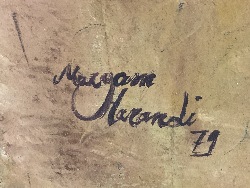 Maryam
Harandi
79